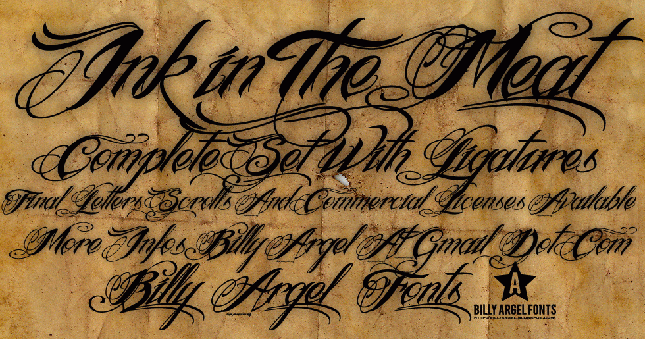 Ink in The Meat
Complete Set With Ligatares
Final Letters Scrolls And Commercial Licenses Available
More Infos Billy Argel At Gmail Dot Com
Billy Argel Fonts
A
BILLY ARGEL FONTS